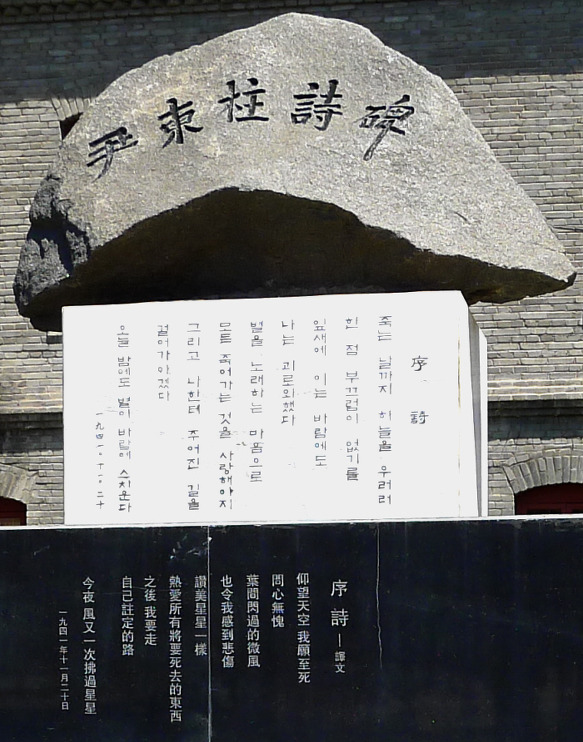 尹東柱詩碑
序 詩
죽는 날까지 하늘을 우러러
한 점 부끄럼이 없기를
잎새에 이는 바람에도
나는 괴로와했다
별을 노래하는 마음으로
모든 죽어가는 것을 사랑해야지
그리고 나한테 주어진 길을
걸어가야겠다
오늘 밤에도 별이 바람에 스치운다
一九四一·十一·二十
序 詩—譯文
仰望天空 我願至死
問心無愧
葉間閃過的微風
也令我感到悲傷
讚美星星一樣
熱愛所有將要死去的東西
之後 我要走
自己註定的路
今夜 風又一次拂過星星
一九四一年十一月二十日